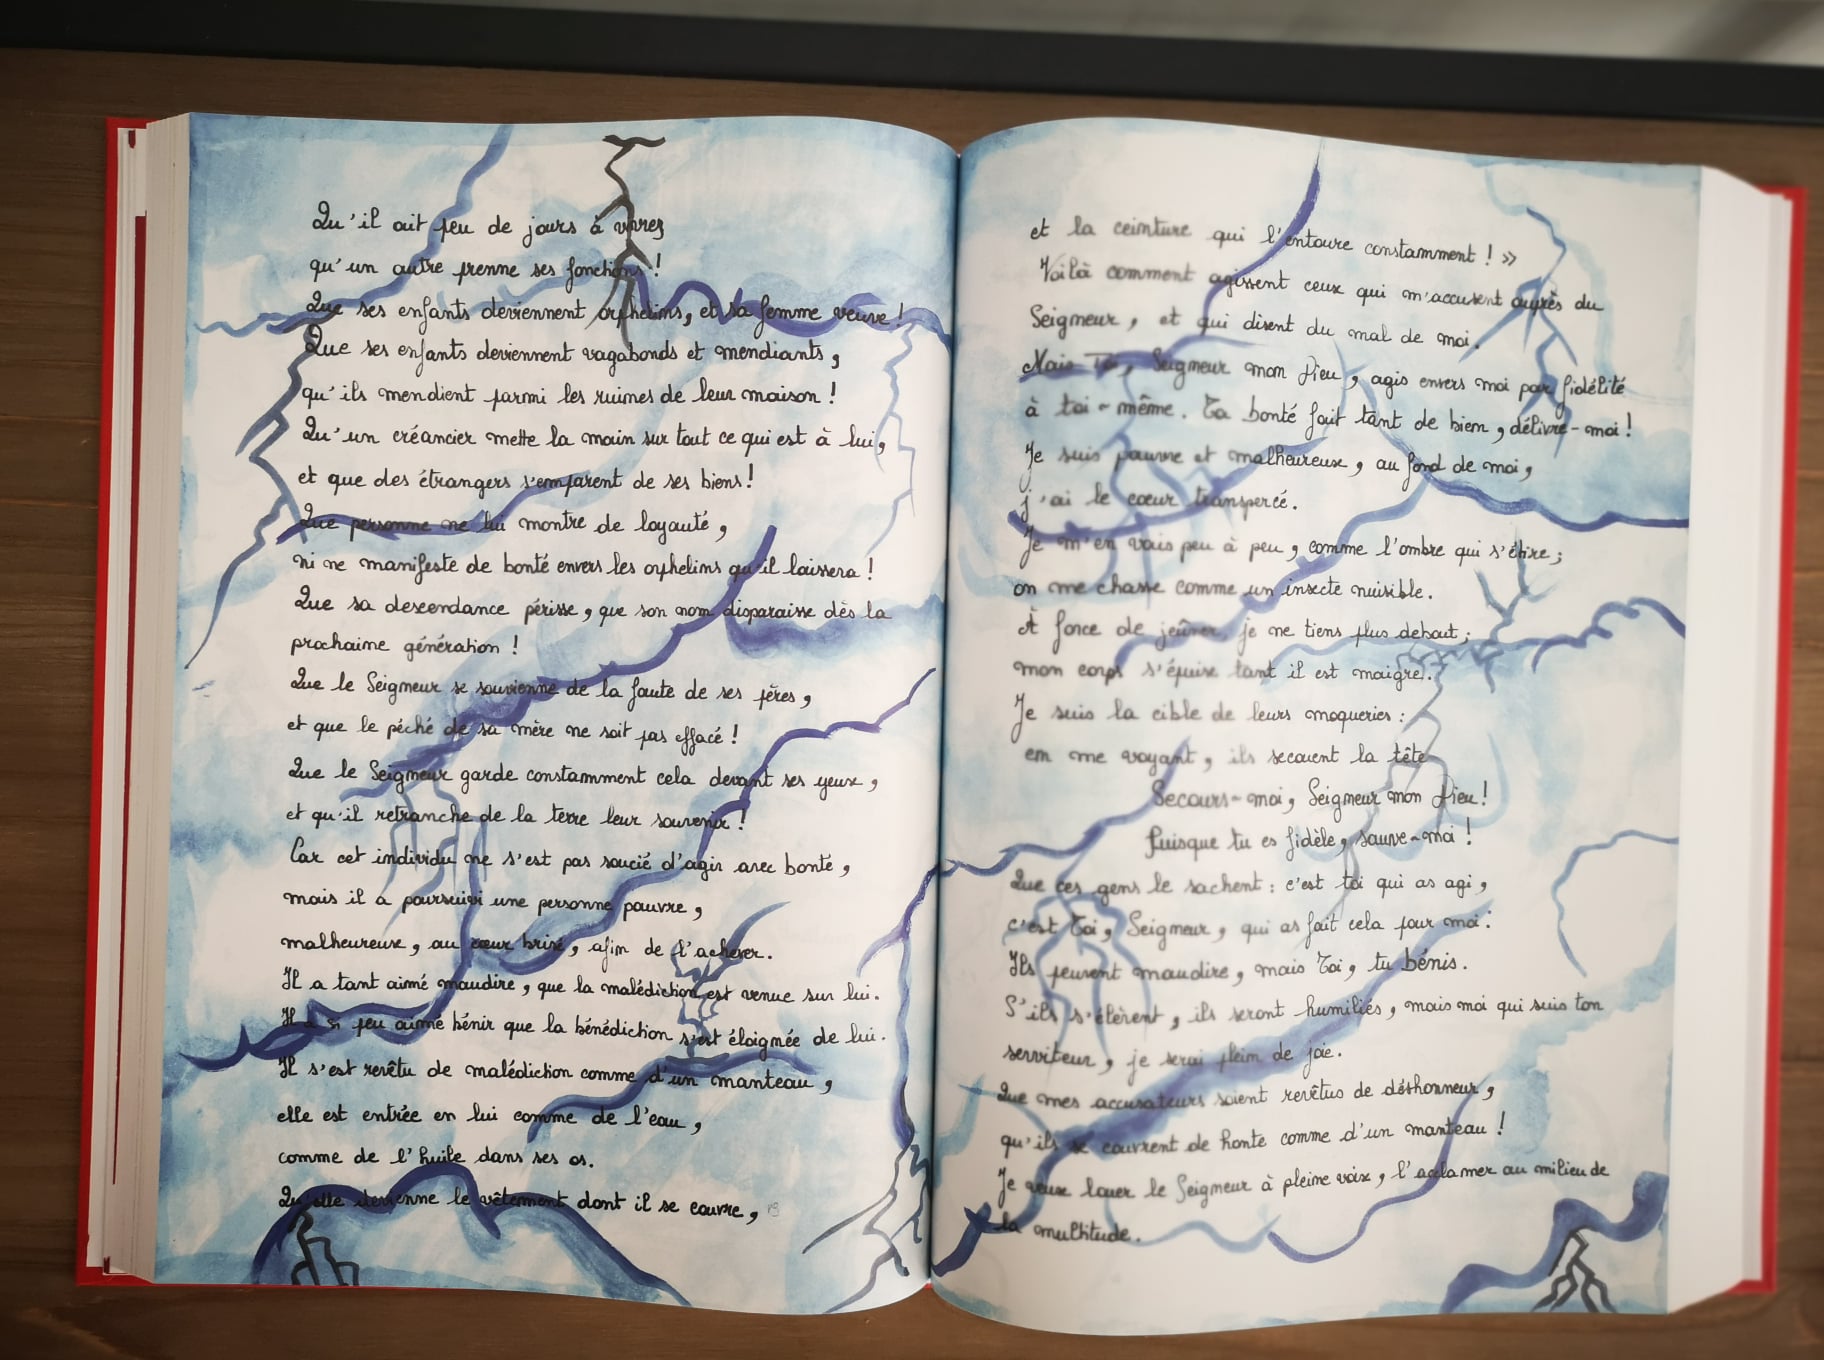 Qu'il ait peu de jours à vivre,
qu'un autre prenne ses fonctions !
Que ses enfants deviennent orphelins, et sa femme veuve !
Que ses enfants deviennent vagabonds et mendiants,
qu'ils mendient parmi les ruines de leur maison !
Qu'un créancier mette la main sur tout ce qui est à lui,
et que des étrangers s'emparent de ses biens !
Que personne ne lui montre de loyauté,
ni ne manifeste de bonté envers les orphelins qu'il laissera !
Que sa descendance périsse, que son nom disparaisse dès la
prochaine génération !
Que le Seigneur se souvienne de la faute de ses pères,
et que le péché de sa mère ne soit pas effacé !
Que le Seigneur garde constamment cela devant ses yeux,
et qu'il retranche de la terre leur souvenir !
Car cet individu ne s'est pas soucié d'agir avec bonté,
mais il a poursuivi une personne pauvre,
malheureuse, au cœur brisé, afin de l'achever.
Il a tant aimé maudire, que la malédiction est venue sur lui.
Il a si peu aimé bénir que la bénédiction s'est éloignée de lui.
Il s'est revêtu de malédiction comme d'un manteau,
elle est entrée en lui comme de l'eau,
comme de l'huile dans ses os.
Qu'elle devienne le vêtement dont il se couvre,
et la ceinture qui l'entoure constamment ! »
Voilà comment agissent ceux qui m'accusent auprès du
Seigneur, et qui disent du mal de moi.
Mais Toi, Seigneur mon Dieu, agis envers moi par fidélité
à toi-même. Ta bonté fait tant de bien, délivre-moi !
Je suis pauvre et malheureux, au fond de moi,
j'ai le cœur transpercé.
Je m'en vais peu à peu, comme l'ombre qui s'étire ;
on me chasse comme un insecte nuisible.
À force de jeûner, je ne tiens plus debout ;
mon corps s'épuise tant il est maigre.
Je suis la cible de leurs moqueries :
en me voyant, ils secouent la tête
Secours-moi, Seigneur mon Dieu !
Puisque tu es fidèle, sauve-moi !
Que ces gens le sachent : c'est toi qui as agi,
c'est Toi, Seigneur, qui as fait cela pour moi.
Ils peuvent maudire, mais Toi, tu bénis.
S'ils s'élèvent, ils seront humiliés, mais moi qui suis ton
serviteur, je serai plein de joie.
Que mes accusateurs soient revêtus de déshonneur,
qu'ils se couvrent de honte comme d'un manteau !
Je veux louer le Seigneur à pleine voix, l'acclamer au milieu de
la multitude.